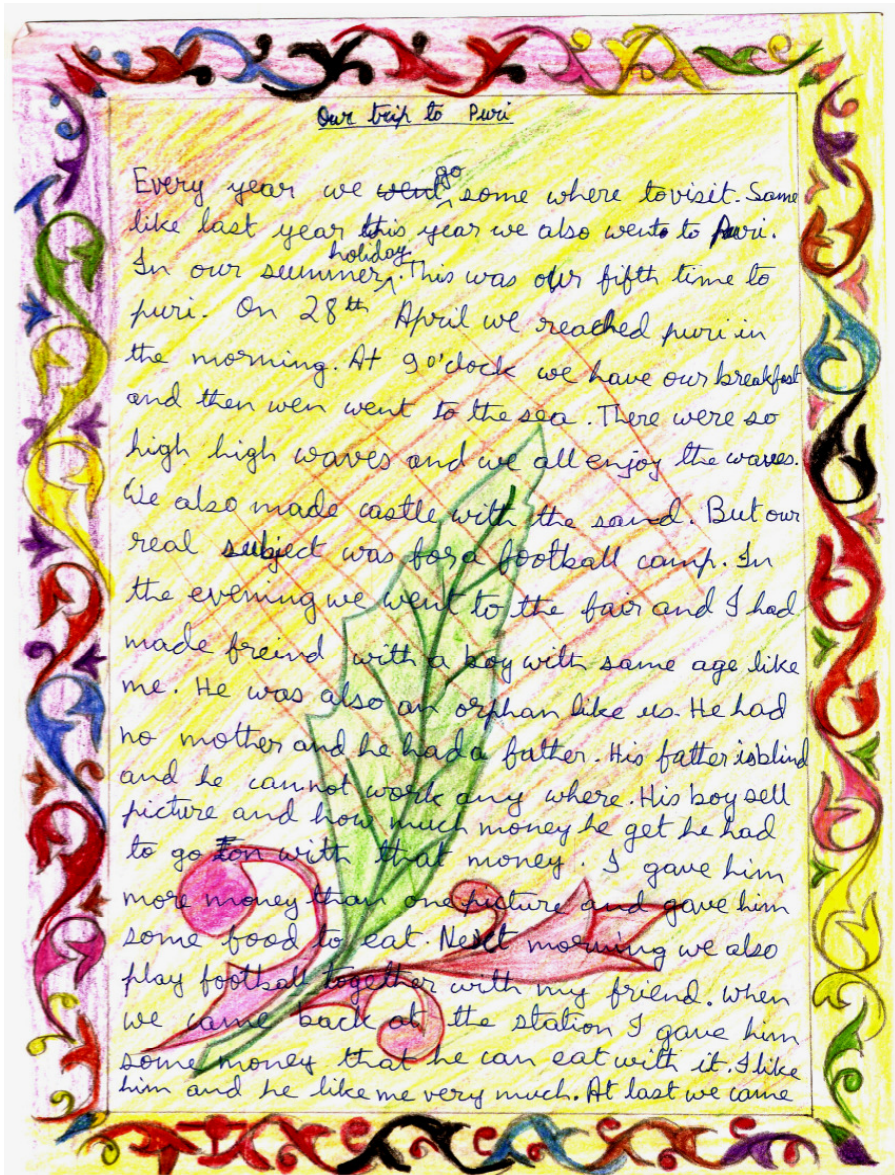 Our trip to Puri
Every year we went go some where to visit. Same
like last year this year we also went to Puri.
In our summer holiday. This was our fifth time to
puri. On 28th April we reached puri in
the morning. At 9 o'clock we have our breakfast
and then wen went to the sea. There were so
high high waves and we all enjoy the waves.
We also made castle with the sand. But our
real subject was for a football camp. In
the evening we went to the fair and I had
made freind with a boy with same age like
me. He was also an orphan like us. He had
no mother and he had a father. His father is blind
and he can not work any where. His boy sell
picture and how much money he get he had
to go on with that money. I gave him
more money than one picture and gave him
some food to eat. Next morning we also
play football together with my friend. When
we came back at the station I gave him
some money that he can eat with it. I like
him and he like me very much. At last we came